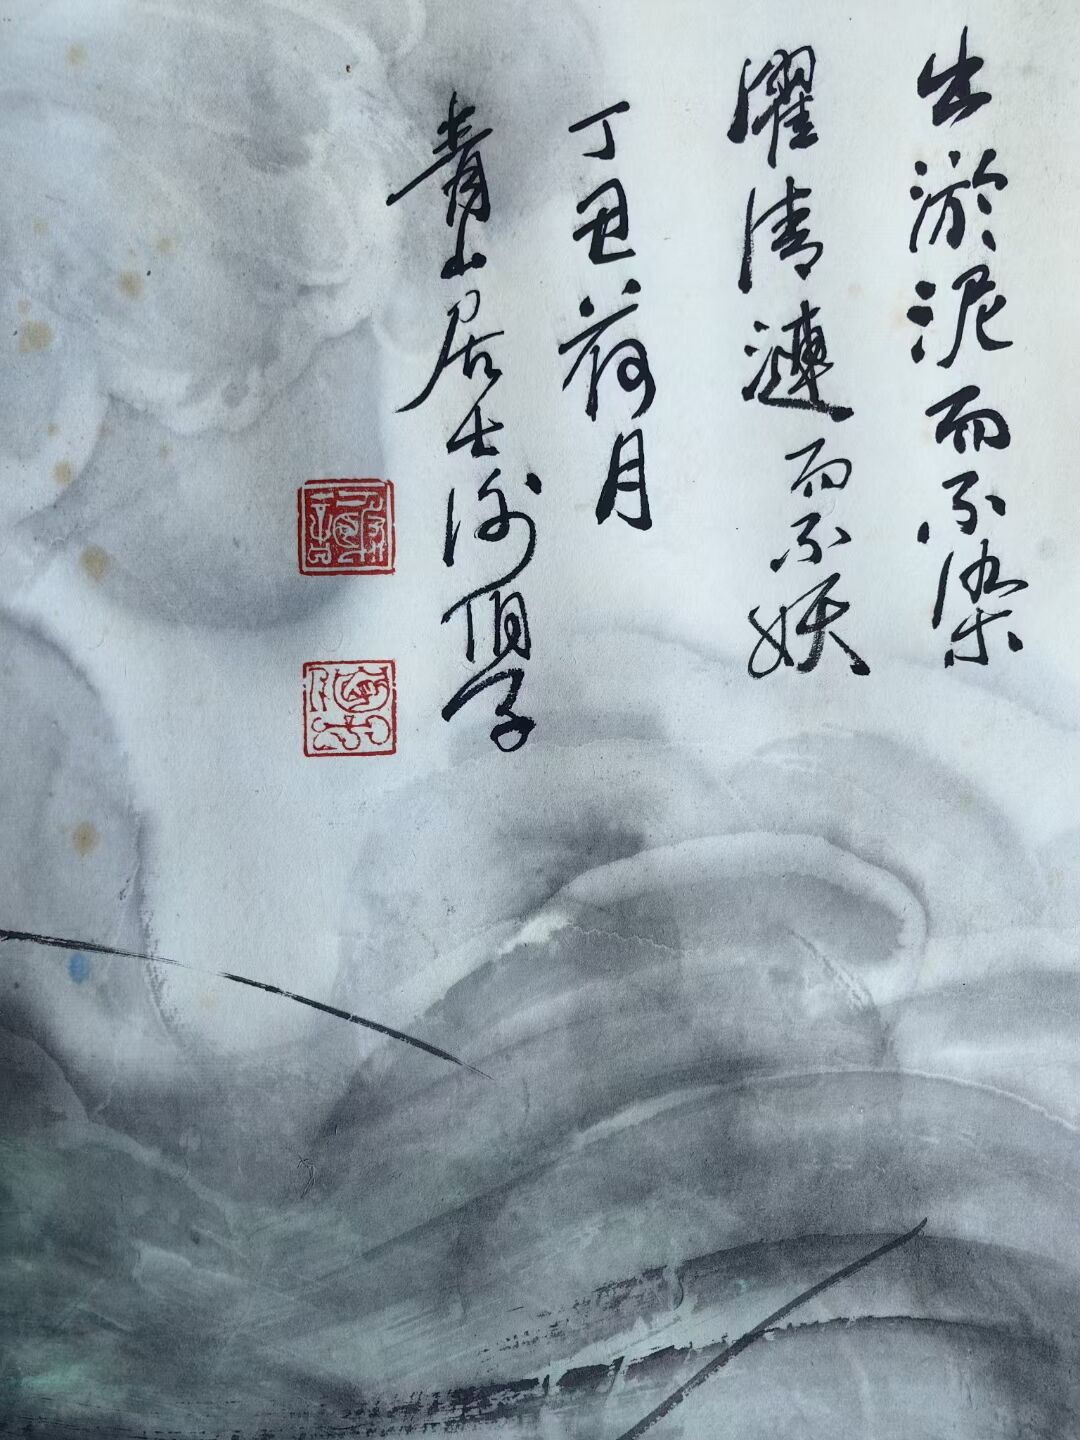 出淤泥而不染
濯清漣而不妖
丁丑荷月
青山居士謝